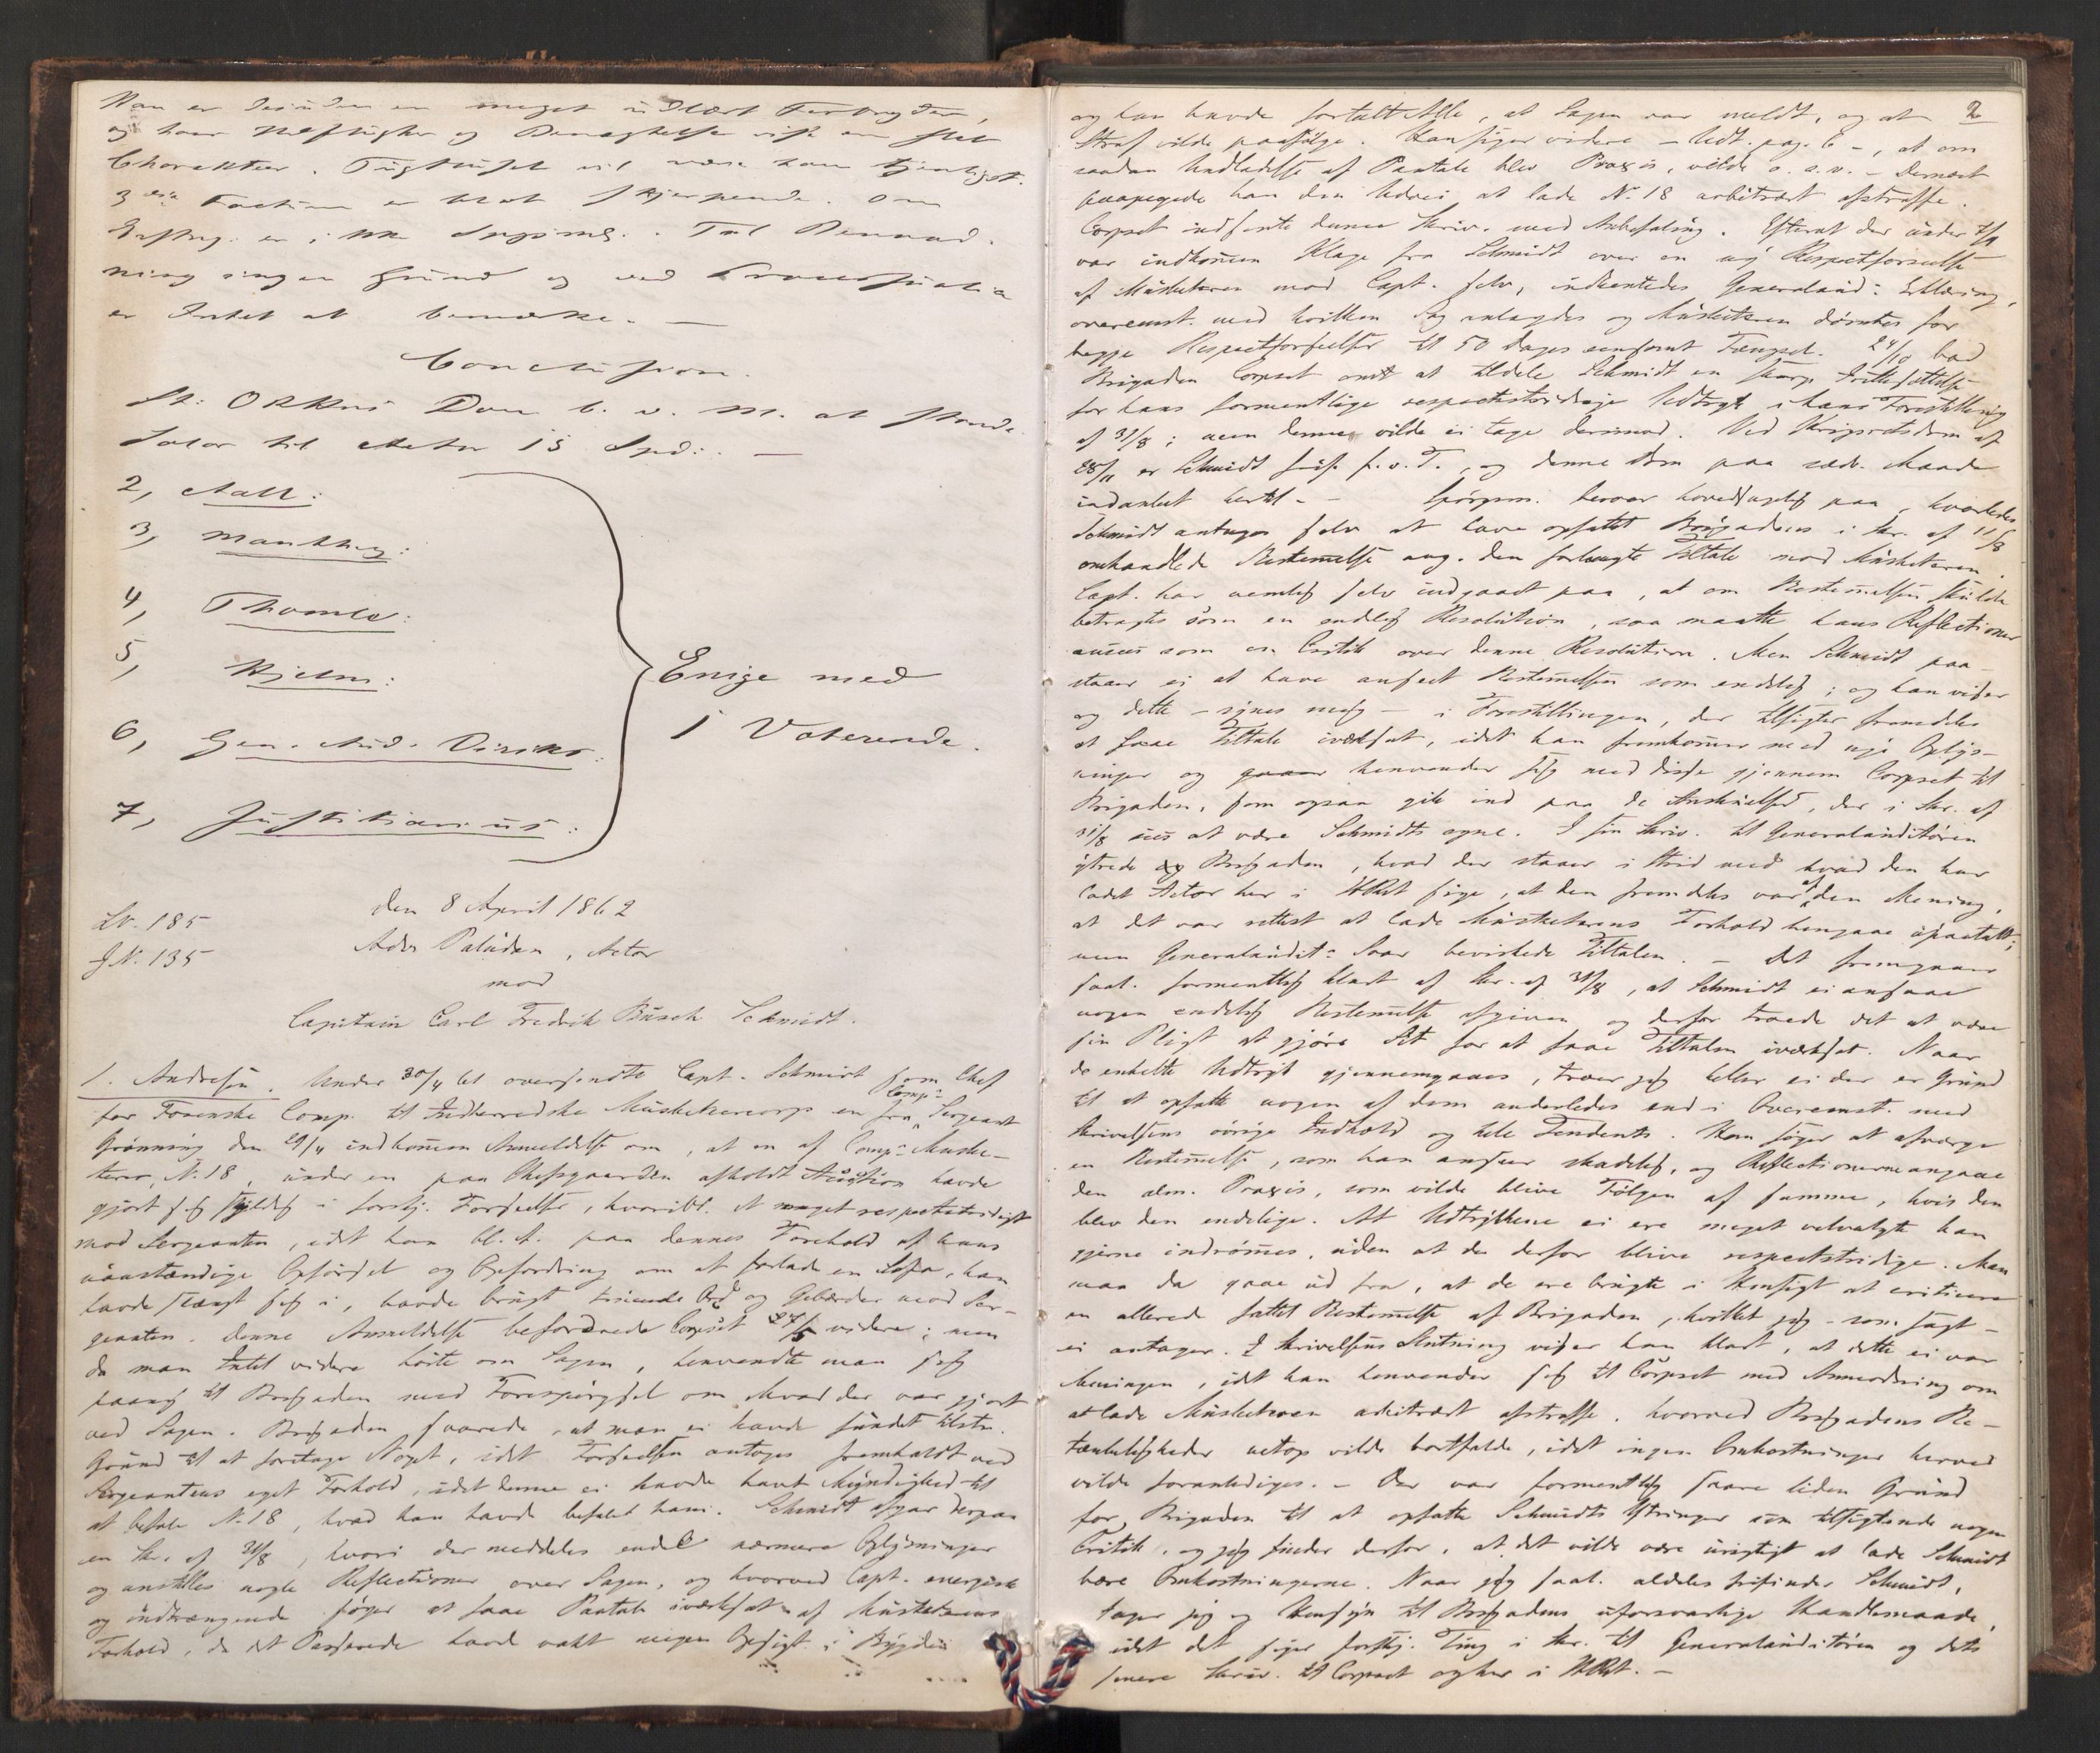 Han er desuden en meget udlært Forbryder,
og hans Udflugter og Benægtelse vise en slet
Charakteer. Tugthuset vil være ham tjenligst.
3die Factum er blot skjerpende. Om
er ikke Spørgsml. Til Benaad-
ning ingen Grund og ved Processerne
er Intet at bemærke. —
Conclusion.
St: O RKns Dom b. v. M. at stande.
Salar til Actor 15 Spd: —
2, Aall:
3, Manthey:
4, Thomle:
5, Hjelm:
6, Gen. Aud. Diriks:
7, Justitiarius:
Enige med
1 Voterende.
den 8 April 1862
Lv. 185
J N. 135
Adv Paludan, Actor
mod
Capitain Carl Fredrik Büsch Schmidt.
1. Andresen. Under 30/4 61 oversendte Capt. Schmidt som Chef
for Foranske Comp. til Indherredske Musketeercorps en fra Comp: Sergeant
Grønning den 29/4 indkommen Anmeldelse om, at en af Comp: Muske-
terer, N. 18, under en paa Chefsgaarden afholdt Auction havde
gjort sig skyldig i forskj. Forseelser, hvoribl. et meget respectstridigt
mod Sergeanten, idet han bl. A. paa dennes Forehold af hans
uanstændige Opførsel og Opfordring om at forlade en Sofa, han
havde slængt sig i, havde brugt truende Ord og Gebærder mod Ser-
geanten. Denne Anmeldelse befordrede Corpset 27/5 videre; men
da man Intet videre hørte om Sagen, henvendte man sig
paany til Brigaden med Forespørgsel om hvad der var gjort
ved Sagen. Brigaden svarede, at man ei havde fundet tilstr.
Grund til at foretage Noget, idet Forseelsen antoges fremkaldt ved
Sergeantens eget Forhold, idet denne ei havde havt Myndighed til
at befale N. 18, hvad han havde befalet ham. Schmidt afgav derpaa
en Skr. af 31/8, hvori der meddeles endel nærmere Oplysninger
og anstilles nogle Reflectioner over Sagen, og hvorved Capt. energisk
og indtrængende søger at faae Paatale iværksat af Musketerens
Forhold, da det Passerede havde vakt megen Opsigt i Bygden
2
og han havde fortalt Alle, at Sagen var meldt, og at
Straf vilde paafølge. Han siger videre — Udt. pag. 6 —, at om
saadan Undladelse af Paatale blev Praxis, vilde o. s. v. — Dernæst
paapegede han den Udvei at lade N. 18 arbitrært afstraffe.
Corpset indsendte denne Skriv. med Anbefaling. Efterat der under
var indkommen Klage fra Schmidt over en ny Respectforseelse
af Musketeren mod Capt. selv, indhentedes Generalaud: Erklæring,
overeenst. med hvilken Sag anlagdes og Musketeren dømtes for
begge Respectforseelser til 50 Dages eensomt Fængsel. 24/10 bad
Brigaden Corpset om at tildele Schmidt en skarp Irettesættelse
for hans formentlige respectstridige Udtryk i hans Forestilling
af 31/8; men denne vilde ei tage derimod. Ved Krigsretsdom af
25/11 er Schmidt frif. f. v. T., og denne Dom paa sædv. Maade
indanket hertil. — Spørgsm. beroer hovedsagelig paa, hvorledes
Schmidt antages selv at have opfattet Brigadens i Skr. af 11/8
omhandlede Bestemmelse ang. den forlangte Tiltale mod Musketeren.
Capt. har nemlig selv indgaaet paa, at om Bestemmelsen skulde
betragtes som en endelig Resolution, saa maatte hans Reflectioner
ansees som en Critik over denne Resolution. Men Schmidt paa-
staaer ei at have anseet Bestemmelsen som endelig; og han viser
og dette — synes mig — i Forestillingen, der tilsigter fremdeles
at faae Tiltale iværksat, idet han fremkommer med nye Oplys-
ninger og henvender sig med disse gjennem Corpset til
Brigaden, som ogsaa gik ind paa de Anskuelser, der i Skr. af
31/8 sees at være Schmidts egne. I sin Skriv. til Generalauditøren
ytrede Brigaden, hvad der staaer i Strid med hvad den har
ladet Actor her i HRet sige, at den fremdeles var af den Mening,
at det var rettest at lade Musketerens Forhold hengaae upaatalt;
men Generalaudit: Svar bevirkede Tiltalen. — Det fremgaaer
saal. formentlig klart af Skr. af 31/8, at Schmidt ei ansaae
nogen endelig Bestemmelse afgiven og derfor troede det at være
sin Pligt at gjøre Sit for at faae Tiltalen iværksat. Naar
de enkelte Udtryk gjennemgaaes, troer jeg heller ei der er Grund
til at opfatte nogen af dem anderledes end i Overeenst. med
Skrivelsens øvrige Indhold og hele Tendents. Han søger at afværge
en Bestemmelse, som han anseer skadelig, og Reflectionerne angaae
den alm. Praxis, som vilde blive Følgen af samme, hvis den
blev den endelige. At Udtrykkene ei ere meget velvalgte kan
gjerne indrømmes, uden at de derfor blive respectstridige. Man
maa da gaae ud fra, at de ere brugte i Hensigt at criticere
en allerede fattet Bestemmelse af Brigaden, hvilket jeg — som sagt —
ei antager. I Skrivelsens Slutning viser han klart, at dette ei var
Meningen, idet han henvender sig til Corpset med Anmodning om
at lade Musketeren arbitrært afstraffe, hvorved Brigadens Be-
tænkeligheder netop vilde bortfalde, idet ingen Omkostninger herved
vilde foranlediges. — Der var formentlig saare liden Grund
for Brigaden til at opfatte Schmidts Ytringer som tilsigtende nogen
Critik, og jeg finder derfor, at det vilde være urigtigt at lade Schmidt
bære Omkostningerne. Naar jeg saal. aldeles frifinder Schmidt,
tager jeg og Hensyn til Brigadens uforsvarlige Handlemaade,
idet det siger forskj. Ting i Skr. til Generalauditøren og dets
senere Skriv. til Corpset og her i HRet. —